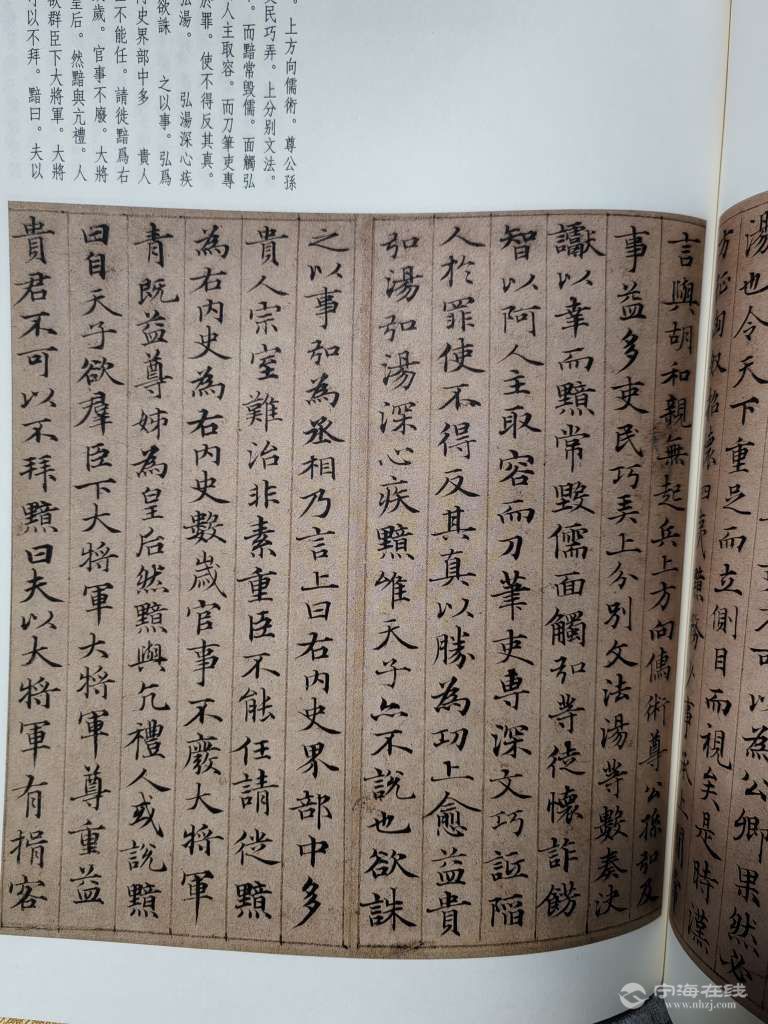 。上方向儒術。尊公孫
民巧弄。上分別文法。
。而黯常毀儒。面觸弘
人主取容。而刀筆吏專
於罪。使不得反其真。
弘湯。 弘湯深心疾
欲誅 之以事。弘爲
史界部中多 貴人
不能任。請徙黯爲右
歲。官事不廢。大將
皇后。然黯與亢禮。人
欲群臣下大將軍。大將
可以不拜。黯曰。夫以
不可以為公卿果然必
湯也令天下重足而立側目而視矣是時漢
方征匈奴招懷四夷黯務少事承上間常
言與胡和親無起兵上方向儒術尊公孫弘及
事益多吏民巧弄上分別文法湯等數奏決
讞以幸而黯常毀儒面觸弘等徒懷詐飾
智以阿人主取容而刀筆吏專深文巧詆陷
人於罪使不得反其真以勝為功上愈益貴
弘湯弘湯深心疾黯唯天子亦不說也欲誅
之以事弘為丞相乃言上曰右內史界部中多
貴人宗室難治非素重臣不能任請徙黯
為右內史為右內史數歲官事不廢大將軍
青既益尊姊為皇后然黯與亢禮人或說黯
曰自天子欲羣臣下大將軍大將軍尊重益
貴君不可以不拜黯曰夫以大將軍有揖客
宁海在线
www.nhzj.com